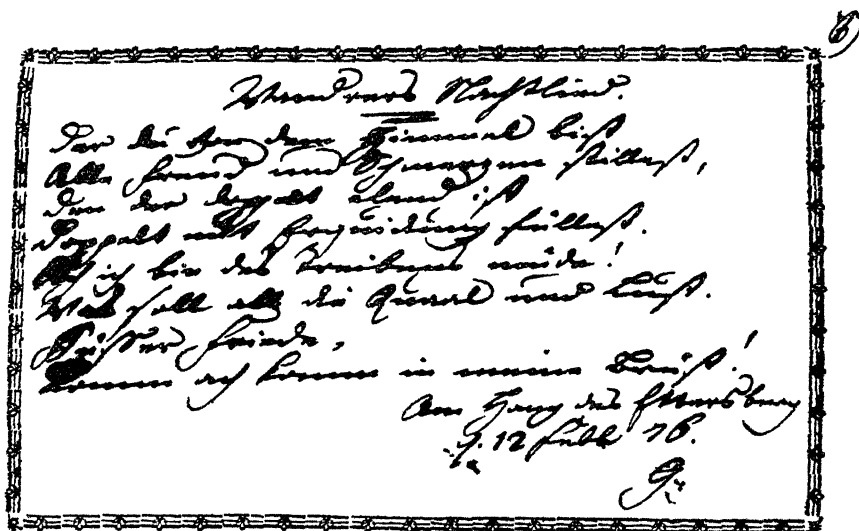 6)
Wandrers Nachtlied.
Der du von dem Himmel bist
Alle Freud und Schmerzen stillest,
Den der doppelt elend ist
Doppelt mit Erquickung füllest.
Ach ich bin des Treibens müde!
Was soll all die Quaal und Lust.
Süsser Friede,
Komm ach komm in meine Brust!
Am Hang des Ettersberg
d. 12 Febr 76.
G.